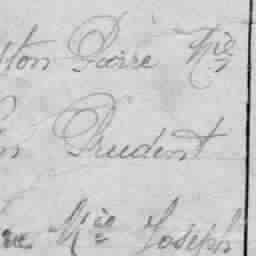 ton Pierre Nie
n Prudent
re Mie Joseph